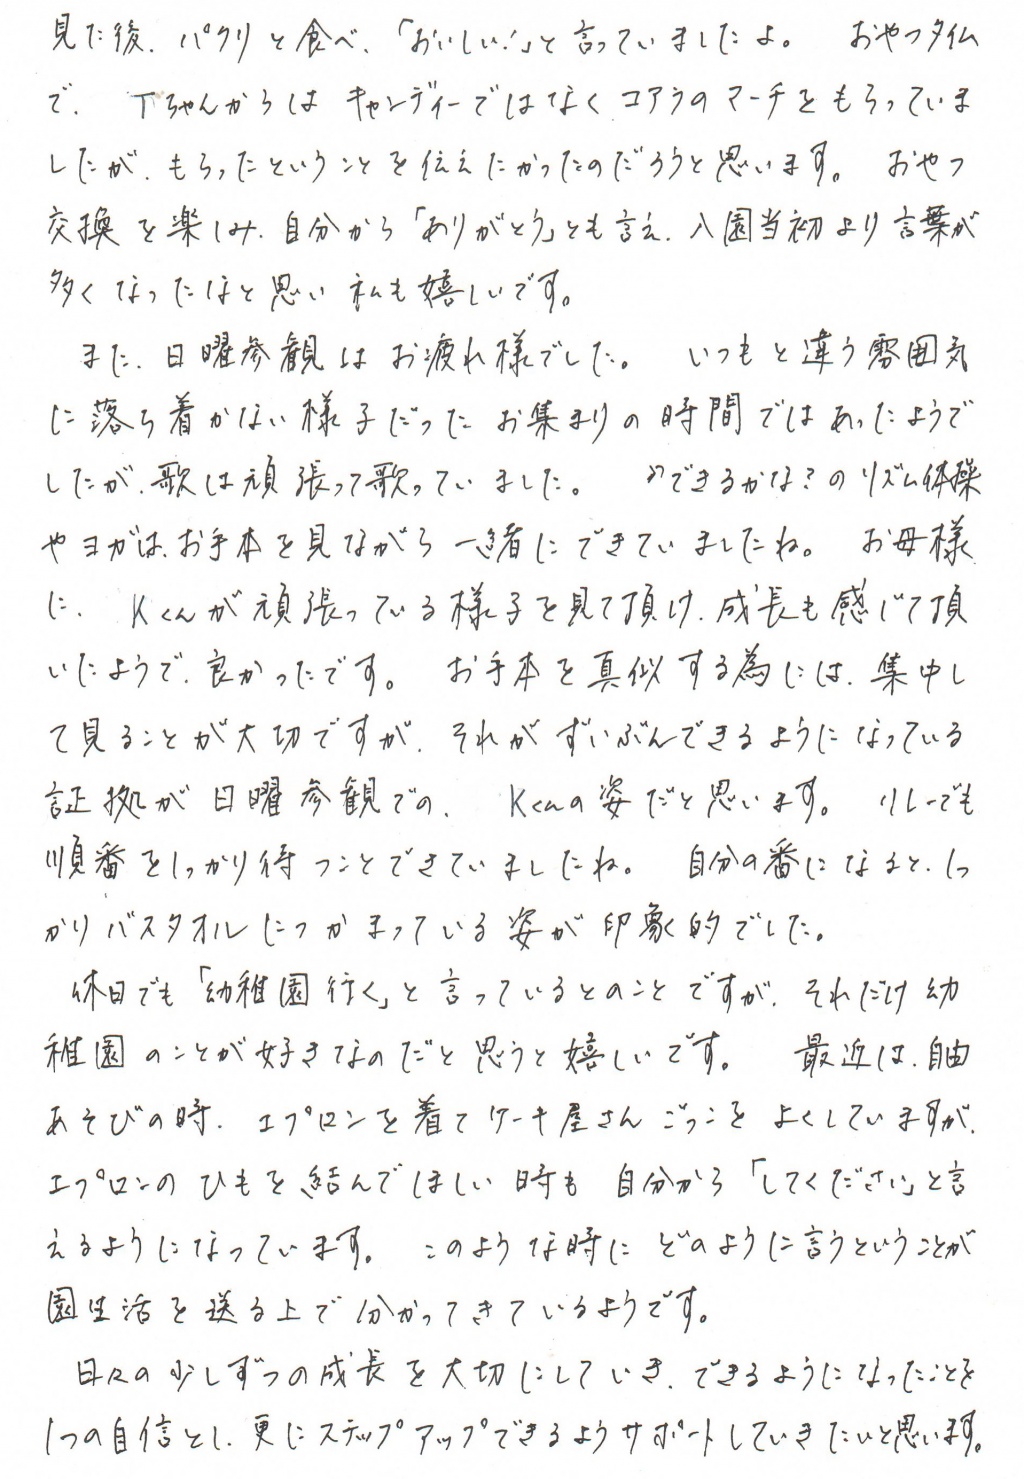 見た後、パクリと食べ、「おいしい!」と言っていましたよ。 おやつタイム
で、 Tちゃんからは キャンディーではなくコアラのマーチをもらっていま
したが、もらったということを伝えたかったのだろうと思います。 おやつ
交換を楽しみ、自分から「ありがとう」とも言え、入園当初より言葉が
多くなったなぁと思い 私も嬉しいです。
また、日曜参観はお疲れ様でした。 いつもと違う雰囲気
に落ち着かない様子だったお集まりの時間ではあったようで
したが、歌は頑張って歌っていました。 できるかな?のリズム体操
やヨガは、お手本を見ながら一緒にできていましたね。 お母様
に、 Kくんが頑張っている様子を見て頂け、成長も感じて頂
いたようで、良かったです。 お手本を真似する為には、集中し
て見ることが大切ですが、それがずいぶんできるようになっている
証拠が日曜参観での、 Kくんの姿だと思います。 リレーでも
順番をしっかり待つことできていましたね。 自分の番になると、しっ
かりバスタオルにつかまっている姿が印象的でした。
休日でも「幼稚園行く」と言っているとのことですが、それだけ幼
稚園のことが好きなのだと思うと嬉しいです。 最近は、自由
あそびの時、エプロンを着てケーキ屋さんごっこをよくしていますが、
エプロンのひもを結んでほしい時も 自分から「してください」と言
えるようになっています。 このような時にどのように言うということが
園生活を送る上で分かってきているようです。
日々の少しずつの成長を大切にしていき、できるようになったことを
1つの自信とし、更にステップアップできるようサポートしていきたいと思います。